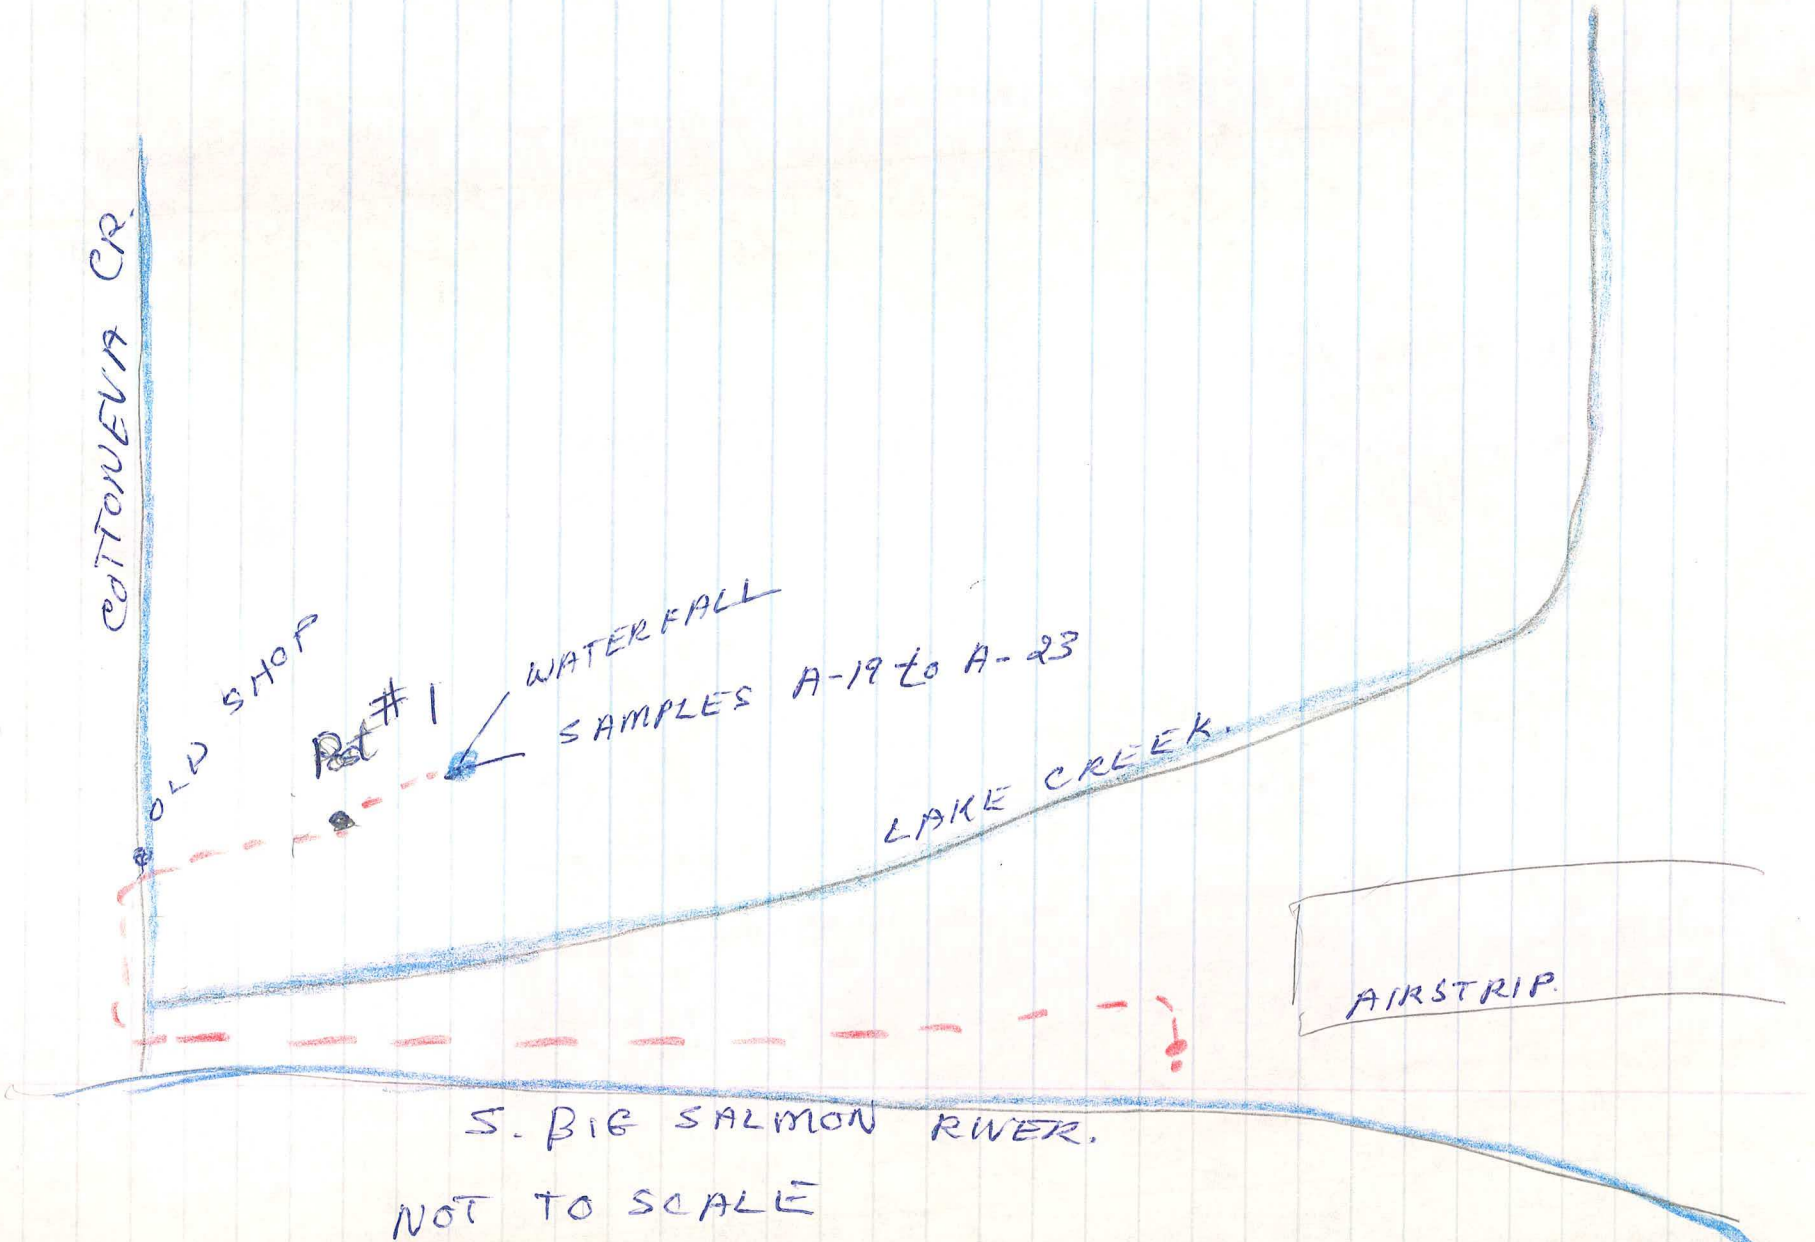 COTTONEVA CR.
OLD SHOP
Post #1
WATERFALL
SAMPLES A-19 to A-23
LAKE CREEK.
AIRSTRIP.
S. BIG SALMON RIVER.
NOT TO SCALE